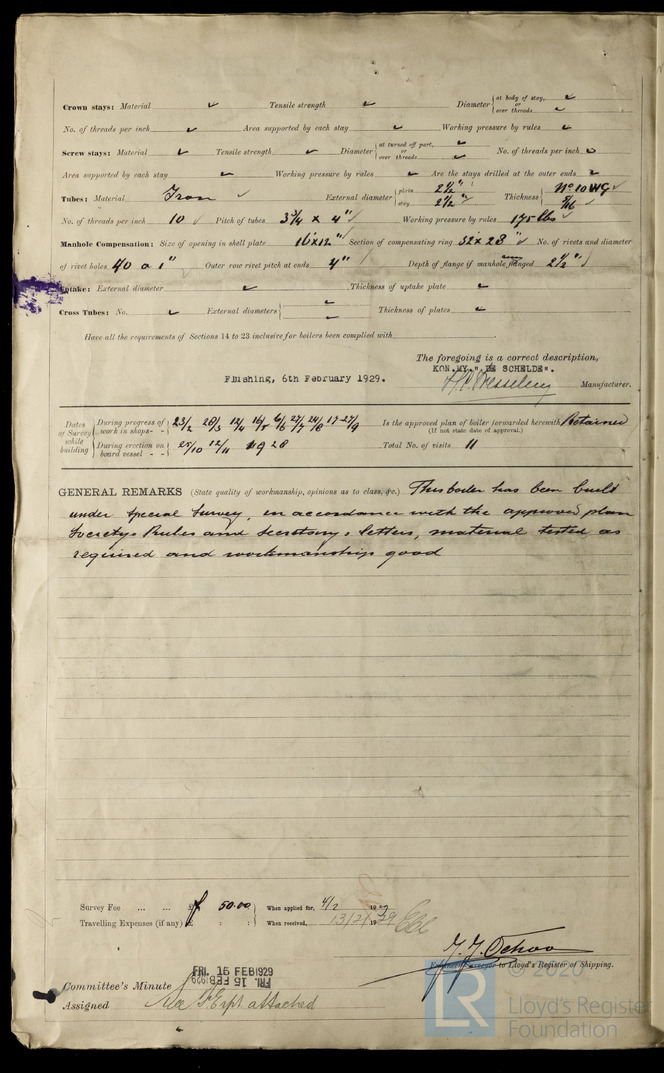 Crown stays: Material ✓ Tensile strength ✓ Diameter { at body of stay, ✓ or over threads ✓
No. of threads per inch ✓ Area supported by each stay ✓ Working pressure by rules ✓
Screw stays: Material ✓ Tensile strength ✓ Diameter { at turned off part, ✓ or over threads ✓ No. of threads per inch ✓
Area supported by each stay ✓ Working pressure by rules ✓ Are the stays drilled at the outer ends ✓
Tubes: Material Iron ✓ External diameter { plain 2½" stay 2½" ✓ Thickness { No 10 WG ✓ 5/16 ✓
No. of threads per inch 10 ✓ Pitch of tubes 3¾ x 4" Working pressure by rules 195 lbs ✓
Manhole Compensation: Size of opening in shell plate 16"x12" Section of compensating ring 32 x 28" ✓ No. of rivets and diameter
of rivet holes 40 a 1" Outer row rivet pitch at ends 4" Depth of flange if manhole flanged 2½"
Uptake: External diameter ✓ Thickness of uptake plate ✓
Cross Tubes: No. ✓ External diameters { ✓ ✓ Thickness of plates ✓
Have all the requirements of Sections 14 to 23 inclusive for boilers been complied with
The foregoing is a correct description,
KON.MY." DE SCHELDE".
Flushing, 6th February 1929. Manufacturer.
Dates of Survey while building
During progress of work in shops - - 23/2 28/3 12/4 16/5 6/6 27/7 24/8 17-27/9
Is the approved plan of boiler forwarded herewith Retained
(If not state date of approval.)
During erection on board vessel - - 25/10 12/11 1928 Total No. of visits 11
GENERAL REMARKS (State quality of workmanship, opinions as to class, &c.) This boiler has been built
under special survey, in accordance with the approved plan
Societys Rules and Secretary's letters, material tested as
required and workmanship good
Survey Fee ... ... £ f 50.00 When applied for, 4/2 1929
Travelling Expenses (if any) £ : : When received, 13/2/1929
J. J. Ochoo
Engineer Surveyor to Lloyd's Register of Shipping.
Committee's Minute FRI. 15 FEB 1929
FRI. 15 FEB 1929
Assigned See F.E. rpt. attached
© 2020
LR
Lloyd's Register
Foundation